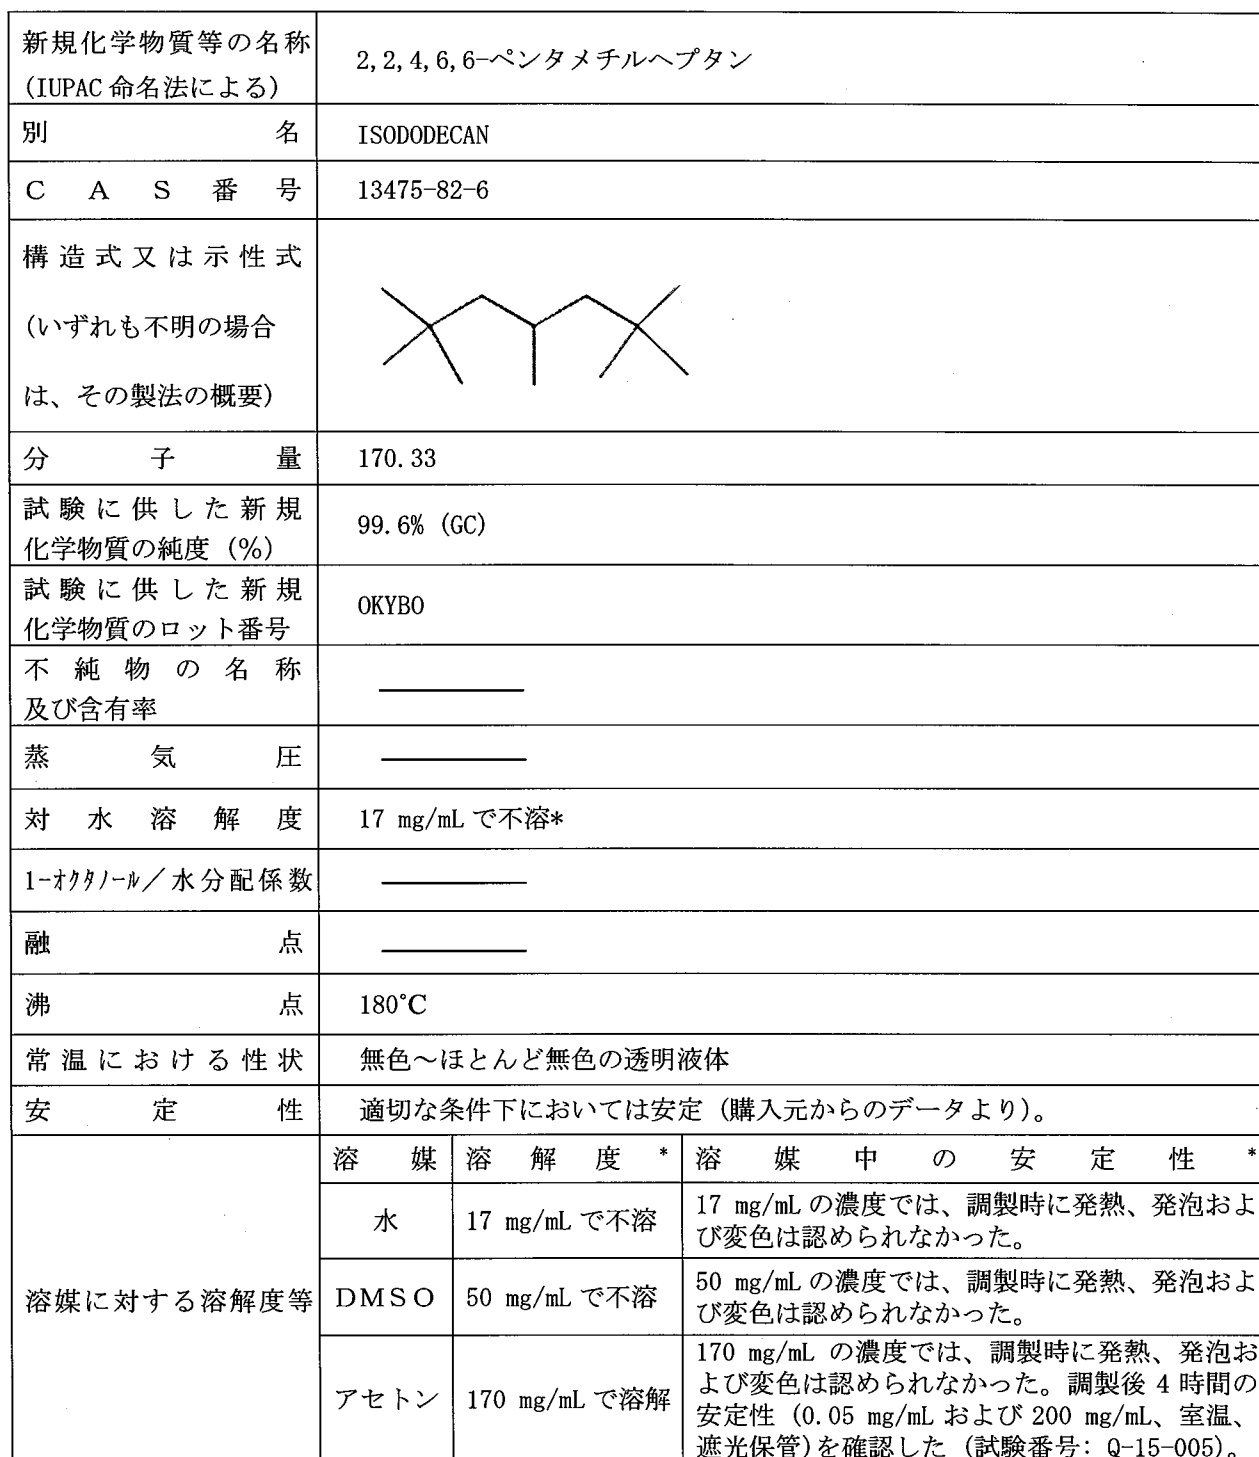 新規化学物質等の名称
(IUPAC 命名法による)
2,2,4,6,6-ペンタメチルヘプタン
別名
ISODODECAN
CAS番号
13475-82-6
構造式又は示性式
(いずれも不明の場合
は、その製法の概要)
分子量
170.33
試験に供した新規
化学物質の純度 (%)
99.6% (GC)
試験に供した新規
化学物質のロット番号
OKYBO
不純物の名称
及び含有率
蒸気圧
対水溶解度
17 mg/mL で不溶*
1-オクタノール/水分配係数
融点
沸点
180℃
常温における性状
無色~ほとんど無色の透明液体
安定性
適切な条件下においては安定 (購入元からのデータより)。
溶媒に対する溶解度等
溶媒
溶解度*
溶媒中の安定性*
水
17 mg/mL で不溶
17 mg/mL の濃度では、調製時に発熱、発泡およ
び変色は認められなかった。
DMSO
50 mg/mL で不溶
50 mg/mL の濃度では、調製時に発熱、発泡およ
び変色は認められなかった。
アセトン
170 mg/mL で溶解
170 mg/mL の濃度では、調製時に発熱、発泡お
よび変色は認められなかった。調製後 4 時間の
安定性 (0.05 mg/mL および 200 mg/mL、室温、
遮光保管)を確認した (試験番号: Q-15-005)。